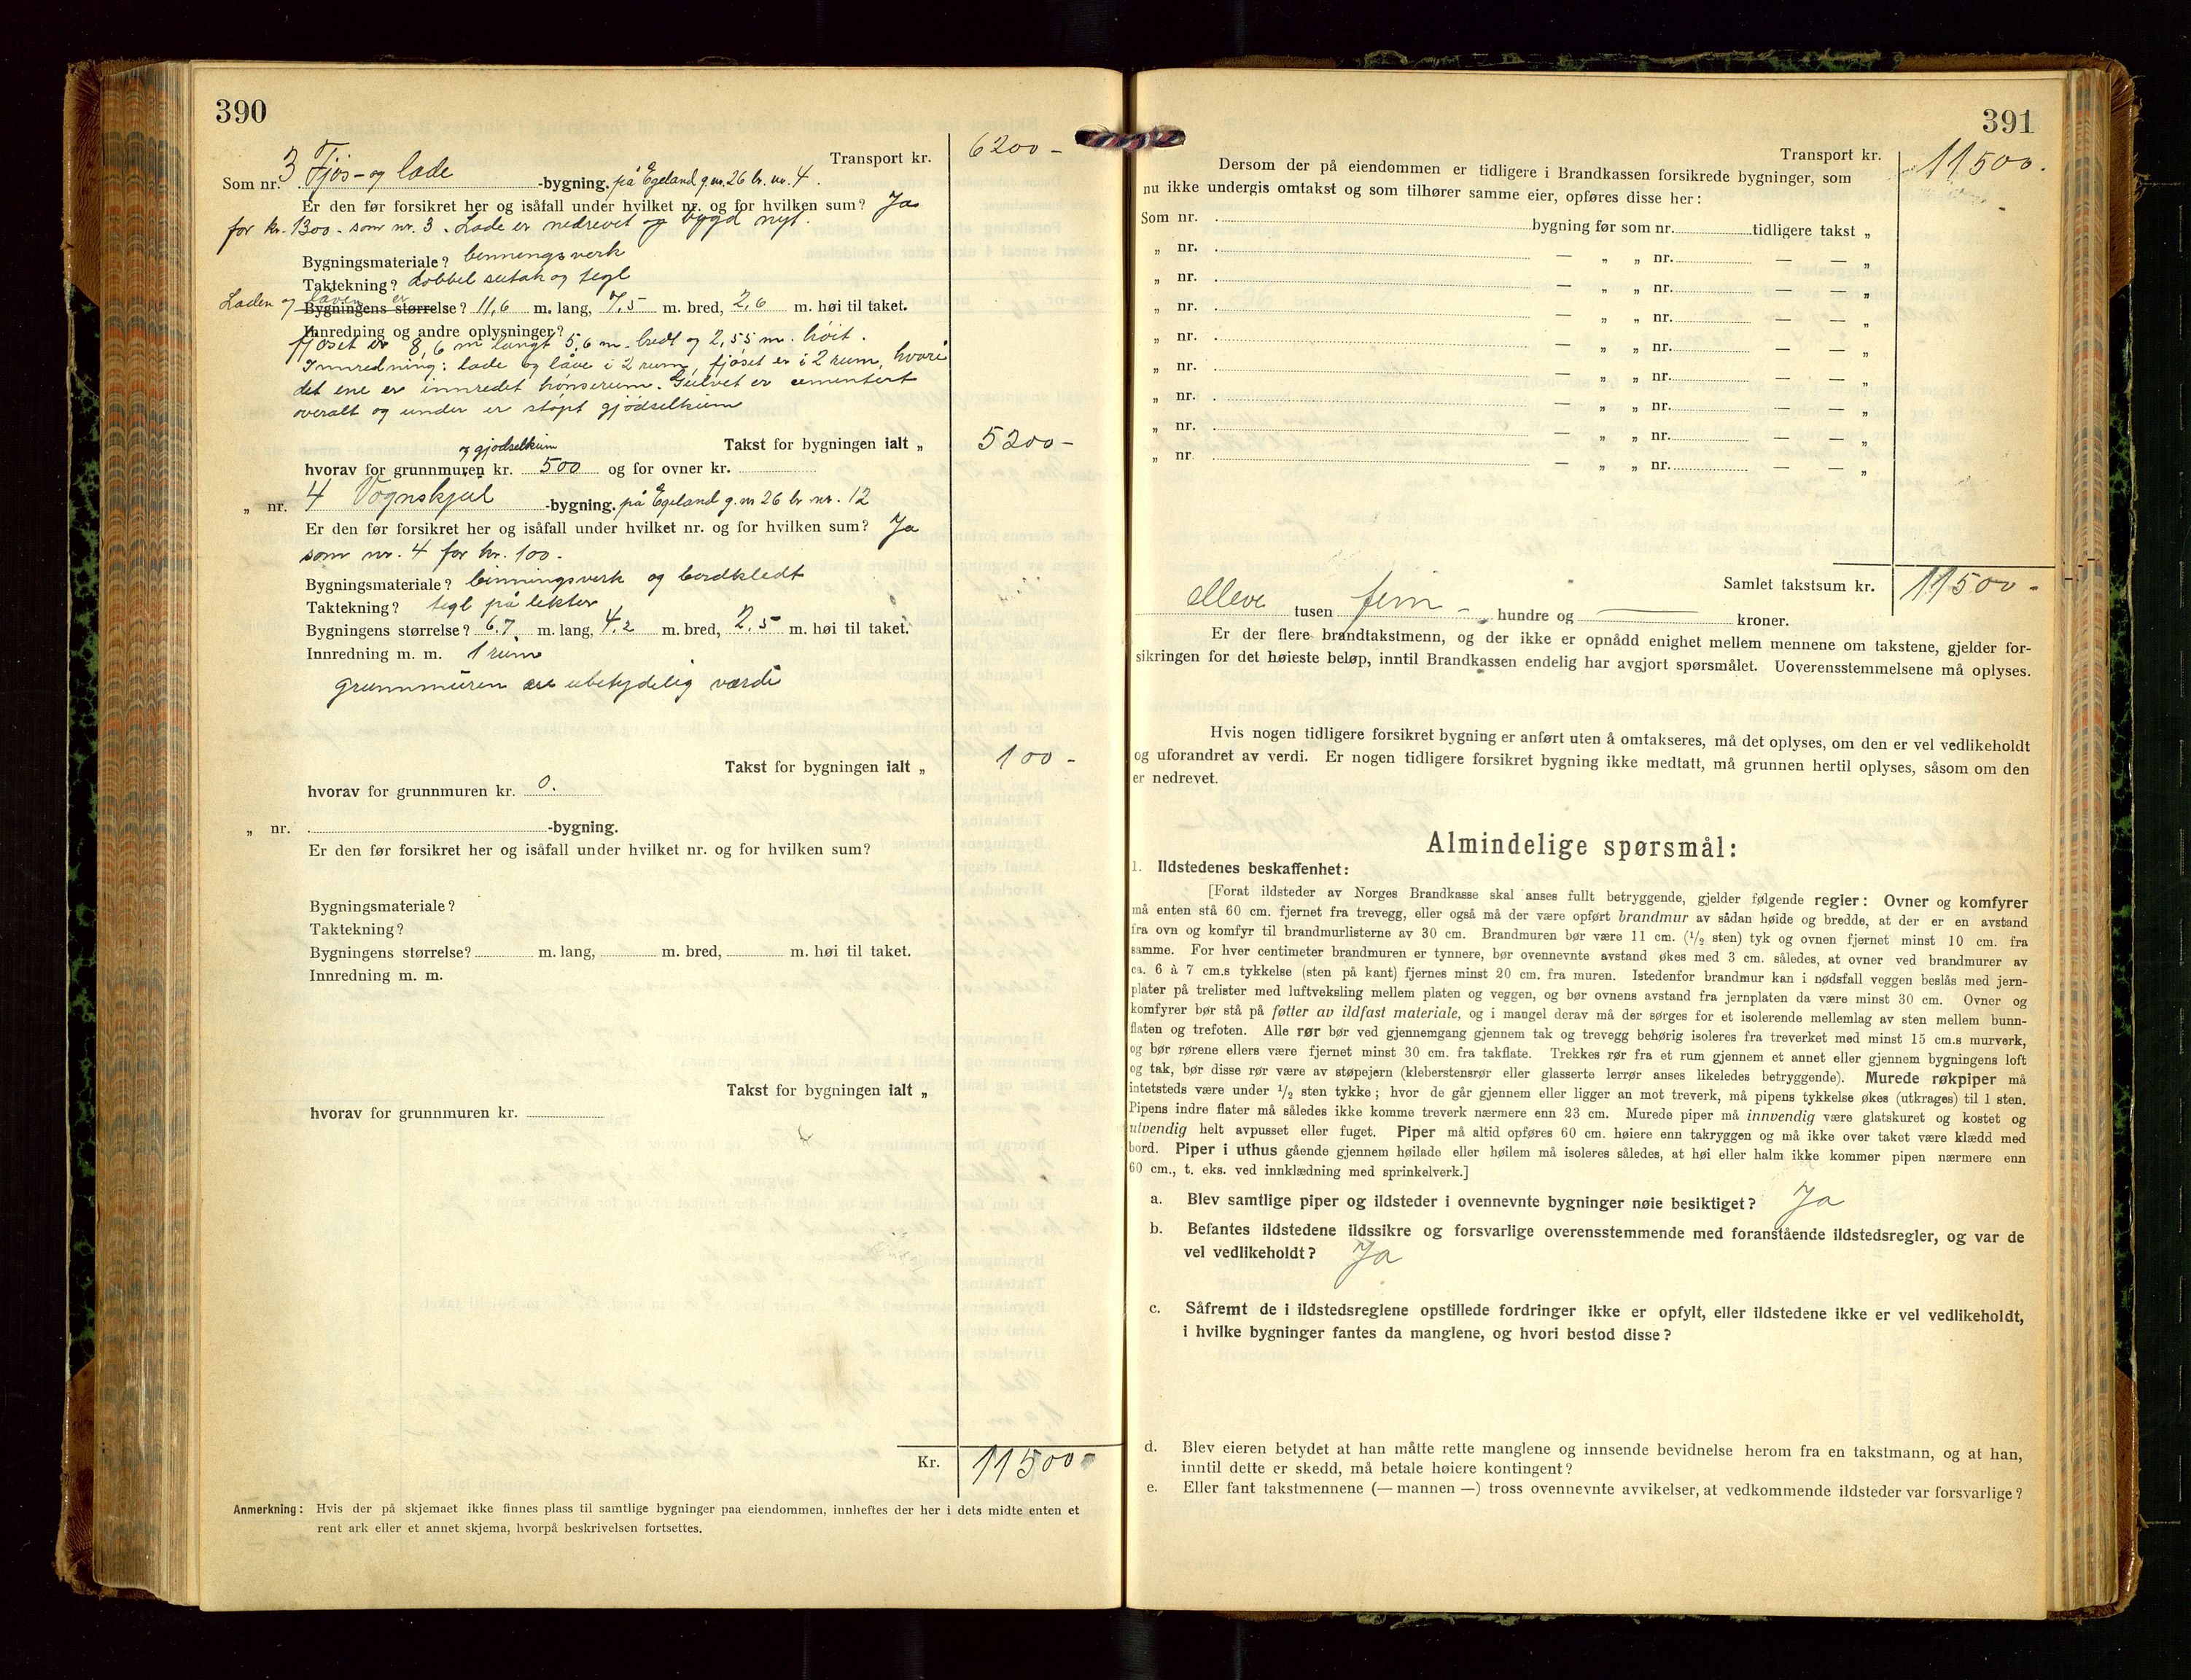 390
Transport kr. 6200 -
Som nr. 3 Fjös- og lade -bygning. på Egeland g.nr. 26 br. nr. 4.
Er den før forsikret her og isåfall under hvilket nr. og for hvilken sum? Ja
for kr. 1300 - som nr. 3. Lade er nedrevet og bygd nyt.
Bygningsmateriale? binningsverk
Taktekning? dobbel sutak og tegl
Laden og låven er
Bygningens størrelse? 11,6 m. lang, 7,5 m. bred, 2,6 m. høi til taket.
Innredning og andre oplysninger?
fjøset er 8,6 m langt 5,6 m. bredt og 2,55 m. höit.
Innredning: lade og låve i 2 rum, fjøset er i 2 rum, hvori
det ene er innredet hönserum. Gulvet er cementert
overalt og under er støpt gjödselkum
Takst for bygningen ialt „ 5200 -
og gjödselkum
hvorav for grunnmuren kr. 500 og for ovner kr.
„ nr. 4 Vognskjul -bygning. på Egeland g.nr. 26 br. nr. 12
Er den før forsikret her og isåfall under hvilket nr. og for hvilken sum? Ja
som nr. 4 for kr. 100 -
Bygningsmateriale? binningsverk og bordkledt
Taktekning? tegl på lekter
Bygningens størrelse? 6,7 m. lang, 4,2 m. bred, 2,5 m. høi til taket.
Innredning m. m. 1 rum
Grunnmuren av ubetydelig værdi
Takst for bygningen ialt „ 100 -
hvorav for grunnmuren kr. 0.
„ nr. -bygning.
Er den før forsikret her og isåfall under hvilket nr. og for hvilken sum?
Bygningsmateriale?
Taktekning?
Bygningens størrelse? m. lang, m. bred, m. høi til taket.
Innredning m. m.
Takst for bygningen ialt „
hvorav for grunnmuren kr.
Kr. 11500 -
Anmerkning: Hvis der på skjemaet ikke finnes plass til samtlige bygninger paa eiendommen, innheftes der her i dets midte enten et
rent ark eller et annet skjema, hvorpå beskrivelsen fortsettes.
391
Transport kr. 11500.
Dersom der på eiendommen er tidligere i Brandkassen forsikrede bygninger, som
nu ikke undergis omtakst og som tilhører samme eier, opføres disse her:
Som nr. bygning før som nr. tidligere takst „
„ nr. — „ „ nr. — — „
„ nr. — „ „ nr. — — „
„ nr. — „ „ nr. — — „
„ nr. — „ „ nr. — — „
„ nr. — „ „ nr. — — „
„ nr. — „ „ nr. — — „
„ nr. — „ „ nr. — — „
„ nr. — „ „ nr. — — „
Samlet takstsum kr. 11500 -
elleve tusen fem - hundre og — kroner.
Er der flere brandtakstmenn, og der ikke er opnådd enighet mellem mennene om takstene, gjelder for-
sikringen for det høieste beløp, inntil Brandkassen endelig har avgjort spørsmålet. Uoverensstemmelsene må oplyses.
Hvis nogen tidligere forsikret bygning er anført uten å omtakseres, må det oplyses, om den er vel vedlikeholdt
og uforandret av verdi. Er nogen tidligere forsikret bygning ikke medtatt, må grunnen hertil oplyses, såsom om den
er nedrevet.
Almindelige spørsmål:
1. Ildstedenes beskaffenhet:
[Forat ildsteder av Norges Brandkasse skal anses fullt betryggende, gjelder følgende regler: Ovner og komfyrer
må enten stå 60 cm. fjernet fra trevegg, eller også må der være opført brandmur av sådan høide og bredde, at der er en avstand
fra ovn og komfyr til brandmurlisterne av 30 cm. Brandmuren bør være 11 cm. (1/2 sten) tyk og ovnen fjernet minst 10 cm. fra
samme. For hver centimeter brandmuren er tynnere, bør ovennevnte avstand økes med 3 cm. således, at ovner ved brandmurer av
ca. 6 à 7 cm.s tykkelse (sten på kant) fjernes minst 20 cm. fra muren. Istedenfor brandmur kan i nødsfall veggen beslås med jern-
plater på trelister med luftveksling mellem platen og veggen, og bør ovnens avstand fra jernplaten da være minst 30 cm. Ovner og
komfyrer bør stå på føtter av ildfast materiale, og i mangel derav må der sørges for et isolerende mellemlag av sten mellem bunn-
flaten og trefoten. Alle rør bør ved gjennemgang gjennem tak og trevegg behørig isoleres fra treverket med minst 15 cm.s murverk,
og bør rørene ellers være fjernet minst 30 cm. fra takflate. Trekkes rør fra et rum gjennem et annet eller gjennem bygningens loft
og tak, bør disse rør være av støpejern (kleberstensrør eller glasserte lerrør anses likeledes betryggende). Murede røkpiper må
intetsteds være under 1/2 sten tykke; hvor de går gjennem eller ligger an mot treverk, må pipens tykkelse økes (utkrages) til 1 sten.
Pipens indre flater må således ikke komme treverk nærmere enn 23 cm. Murede piper må innvendig være glatskuret og kostet og
utvendig helt avpusset eller fuget. Piper må altid opføres 60 cm. høiere enn takryggen og må ikke over taket være klædd med
bord. Piper i uthus gående gjennem høilade eller høilem må isoleres således, at høi eller halm ikke kommer pipen nærmere enn
60 cm., t. eks. ved innklædning med sprinkelverk.]
a. Blev samtlige piper og ildsteder i ovennevnte bygninger nøie besiktiget? Ja
b. Befantes ildstedene ildssikre og forsvarlige overensstemmende med foranstående ildstedsregler, og var de
vel vedlikeholdt? Ja
c. Såfremt de i ildstedsreglene opstillede fordringer ikke er opfylt, eller ildstedene ikke er vel vedlikeholdt,
i hvilke bygninger fantes da manglene, og hvori bestod disse?
d. Blev eieren betydet at han måtte rette manglene og innsende bevidnelse herom fra en takstmann, og at han,
inntil dette er skedd, må betale høiere kontingent?
e. Eller fant takstmennene (— mannen —) tross ovennevnte avvikelser, at vedkommende ildsteder var forsvarlige?